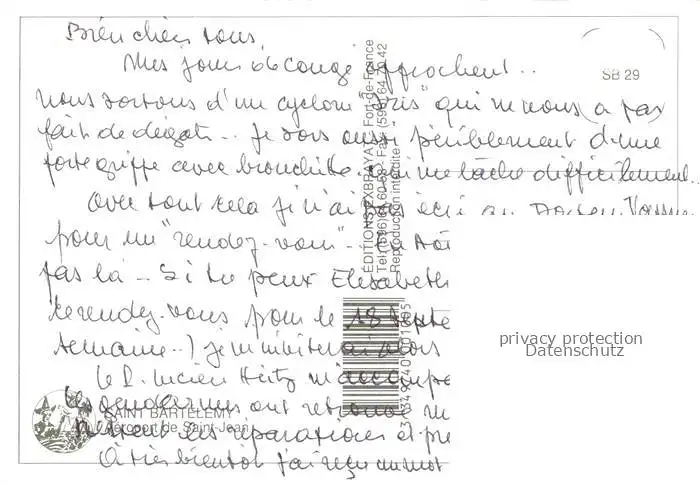 Bien chers tous,
Mes jours de congé approchent...
SB 29
nous sortons d'un cyclone "Iris" qui ne nous a pas
fait de dégâts... Je sors aussi péniblement d'une
forte grippe avec bronchite qui me lâche difficilement...
avec tout cela je n'ai pas écrit au
pour un "rendez-vous"...
pas là... Si tu peux Elisabeth
le rendez-vous pour le 18 Septe
semaine..) je m'inviterai alors
le P. Lucien Heitz m'accompa
Les gendarmes ont retrouvé
les réparations et
A très bientôt j'ai reçu un mot
ÉDITIONS EXBRAYAT - Fort-de-France
Reproduction interdite
SAINT BARTELEMY
Aéroport de Saint-Jean
privacy protection
Datenschutz